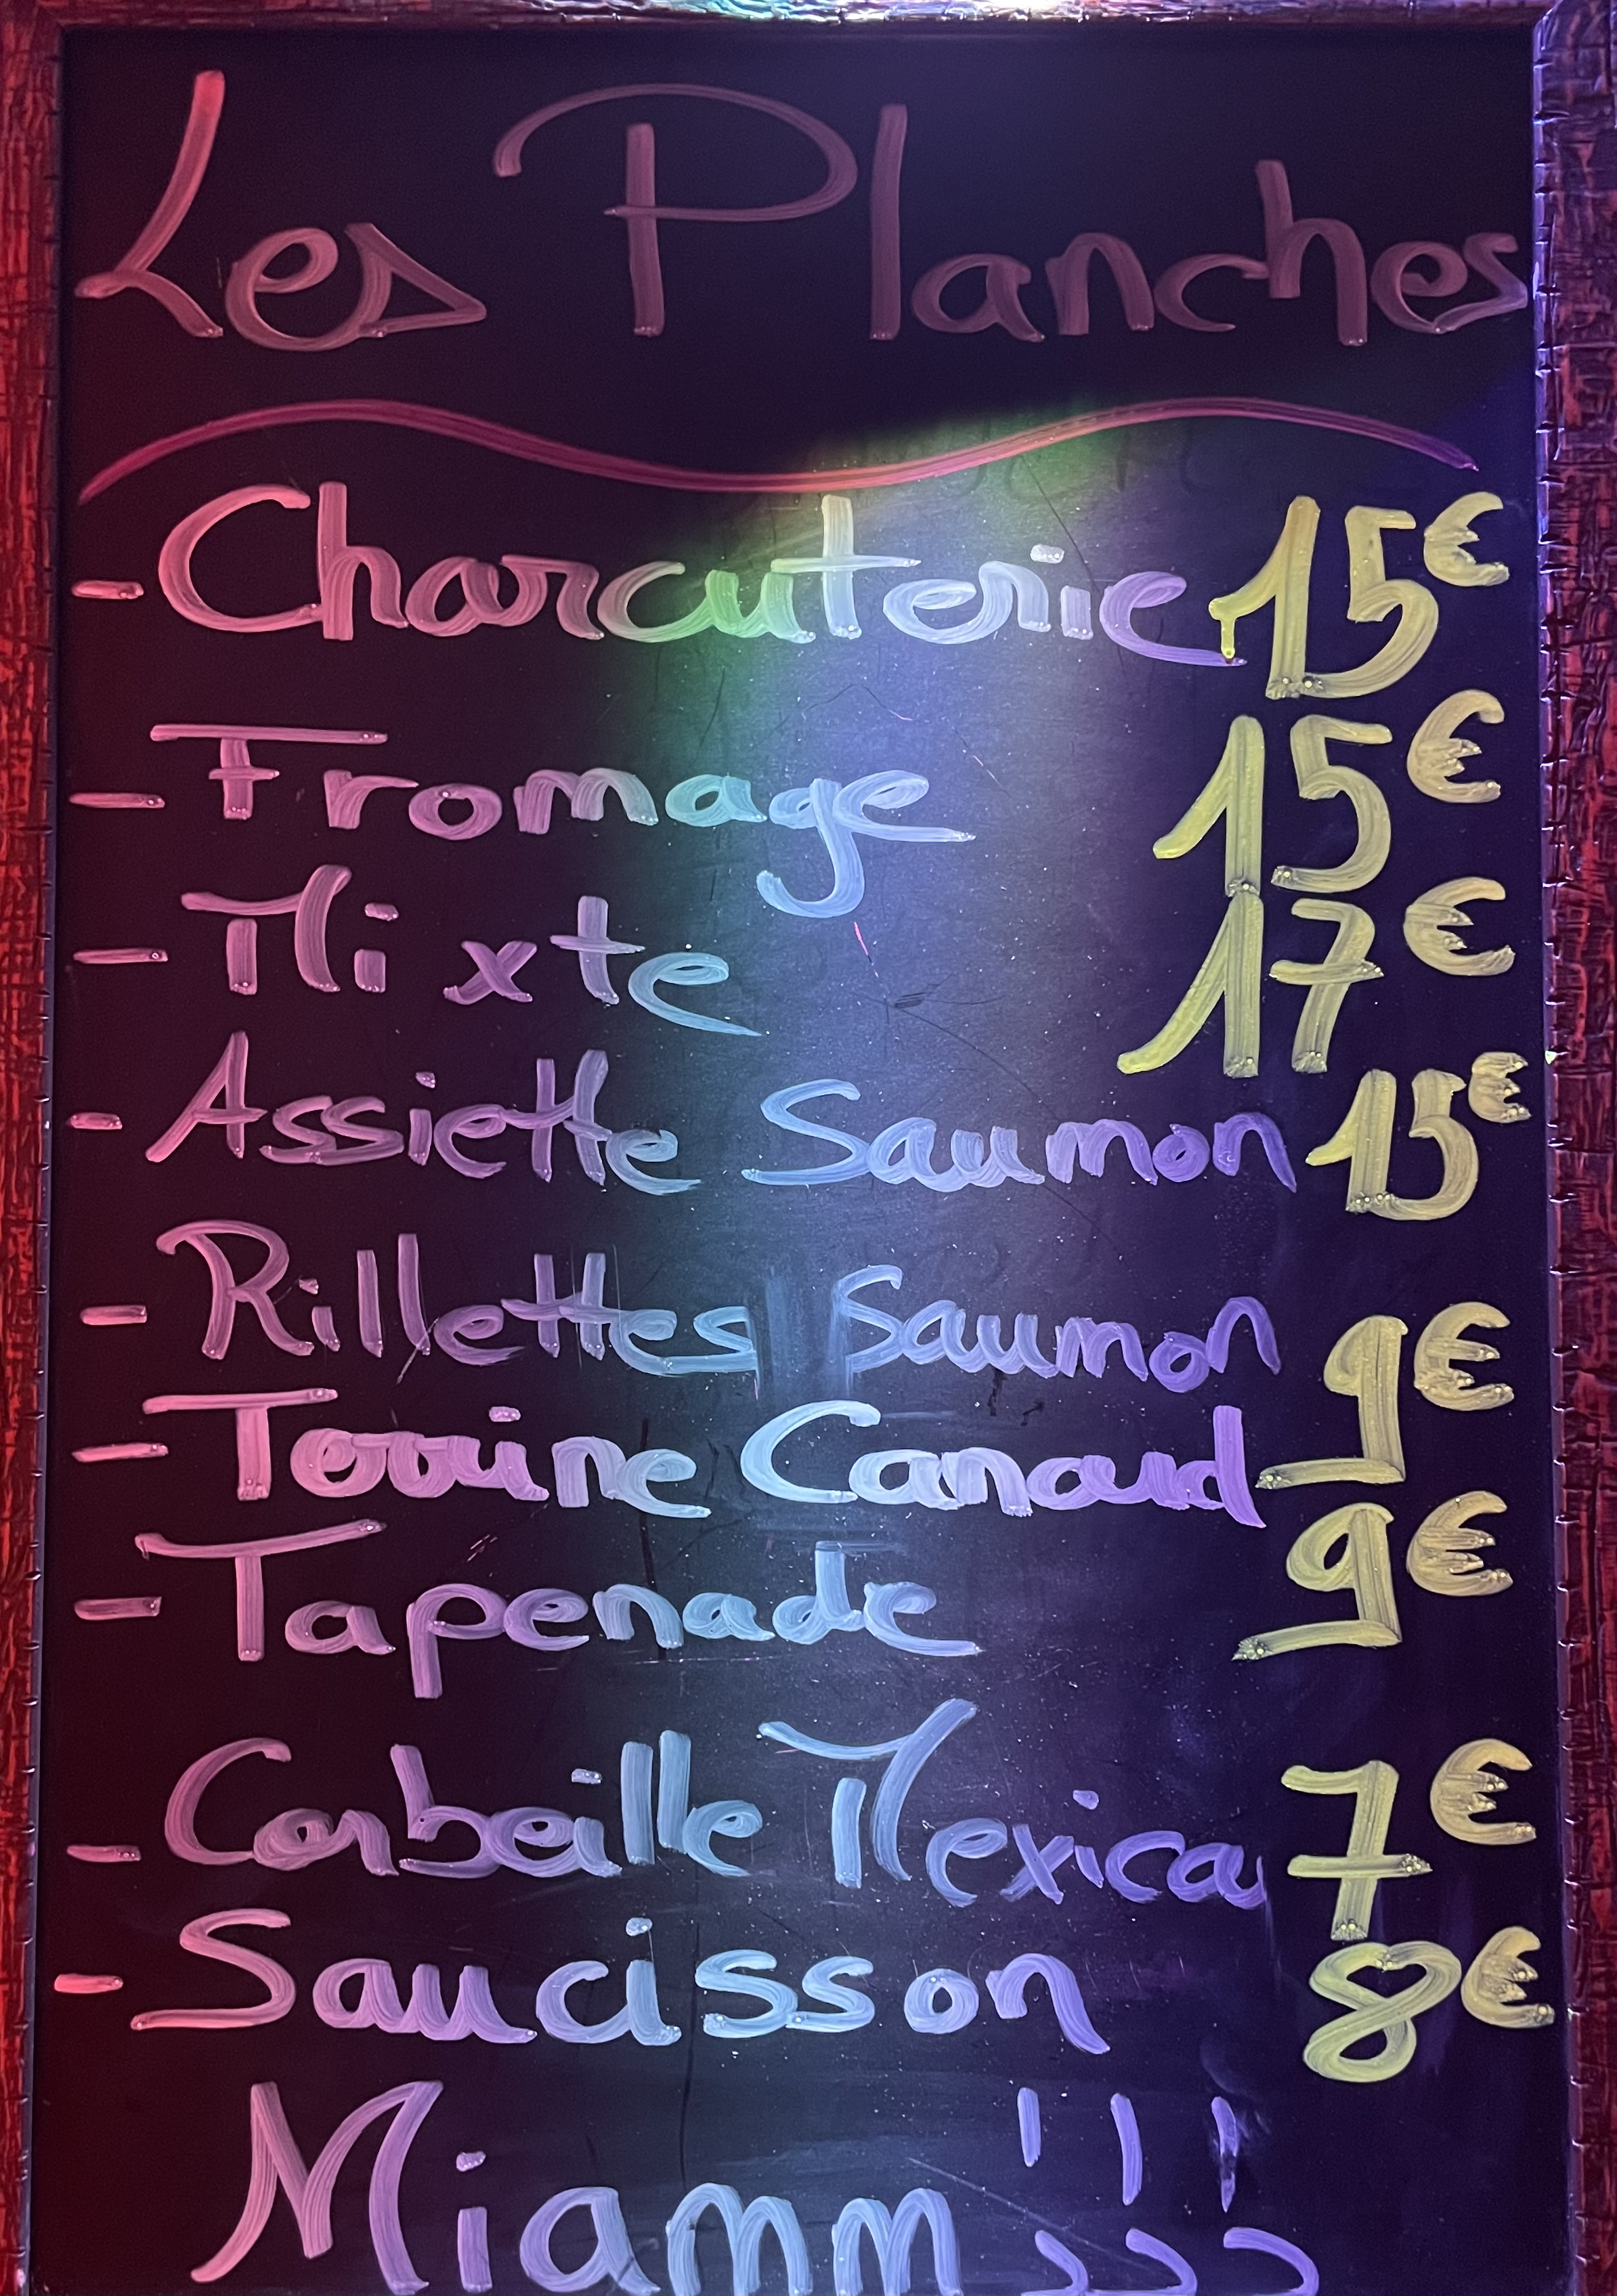 Les Planches
- Charcuterie 15€
- Fromage 15€
- Mixte 17€
- Assiette Saumon 15€
- Rillettes Saumon 9€
- Terrine Canard 9€
- Tapenade
- Corbeille Mexica 7€
- Saucisson 8€
Miamm !!!